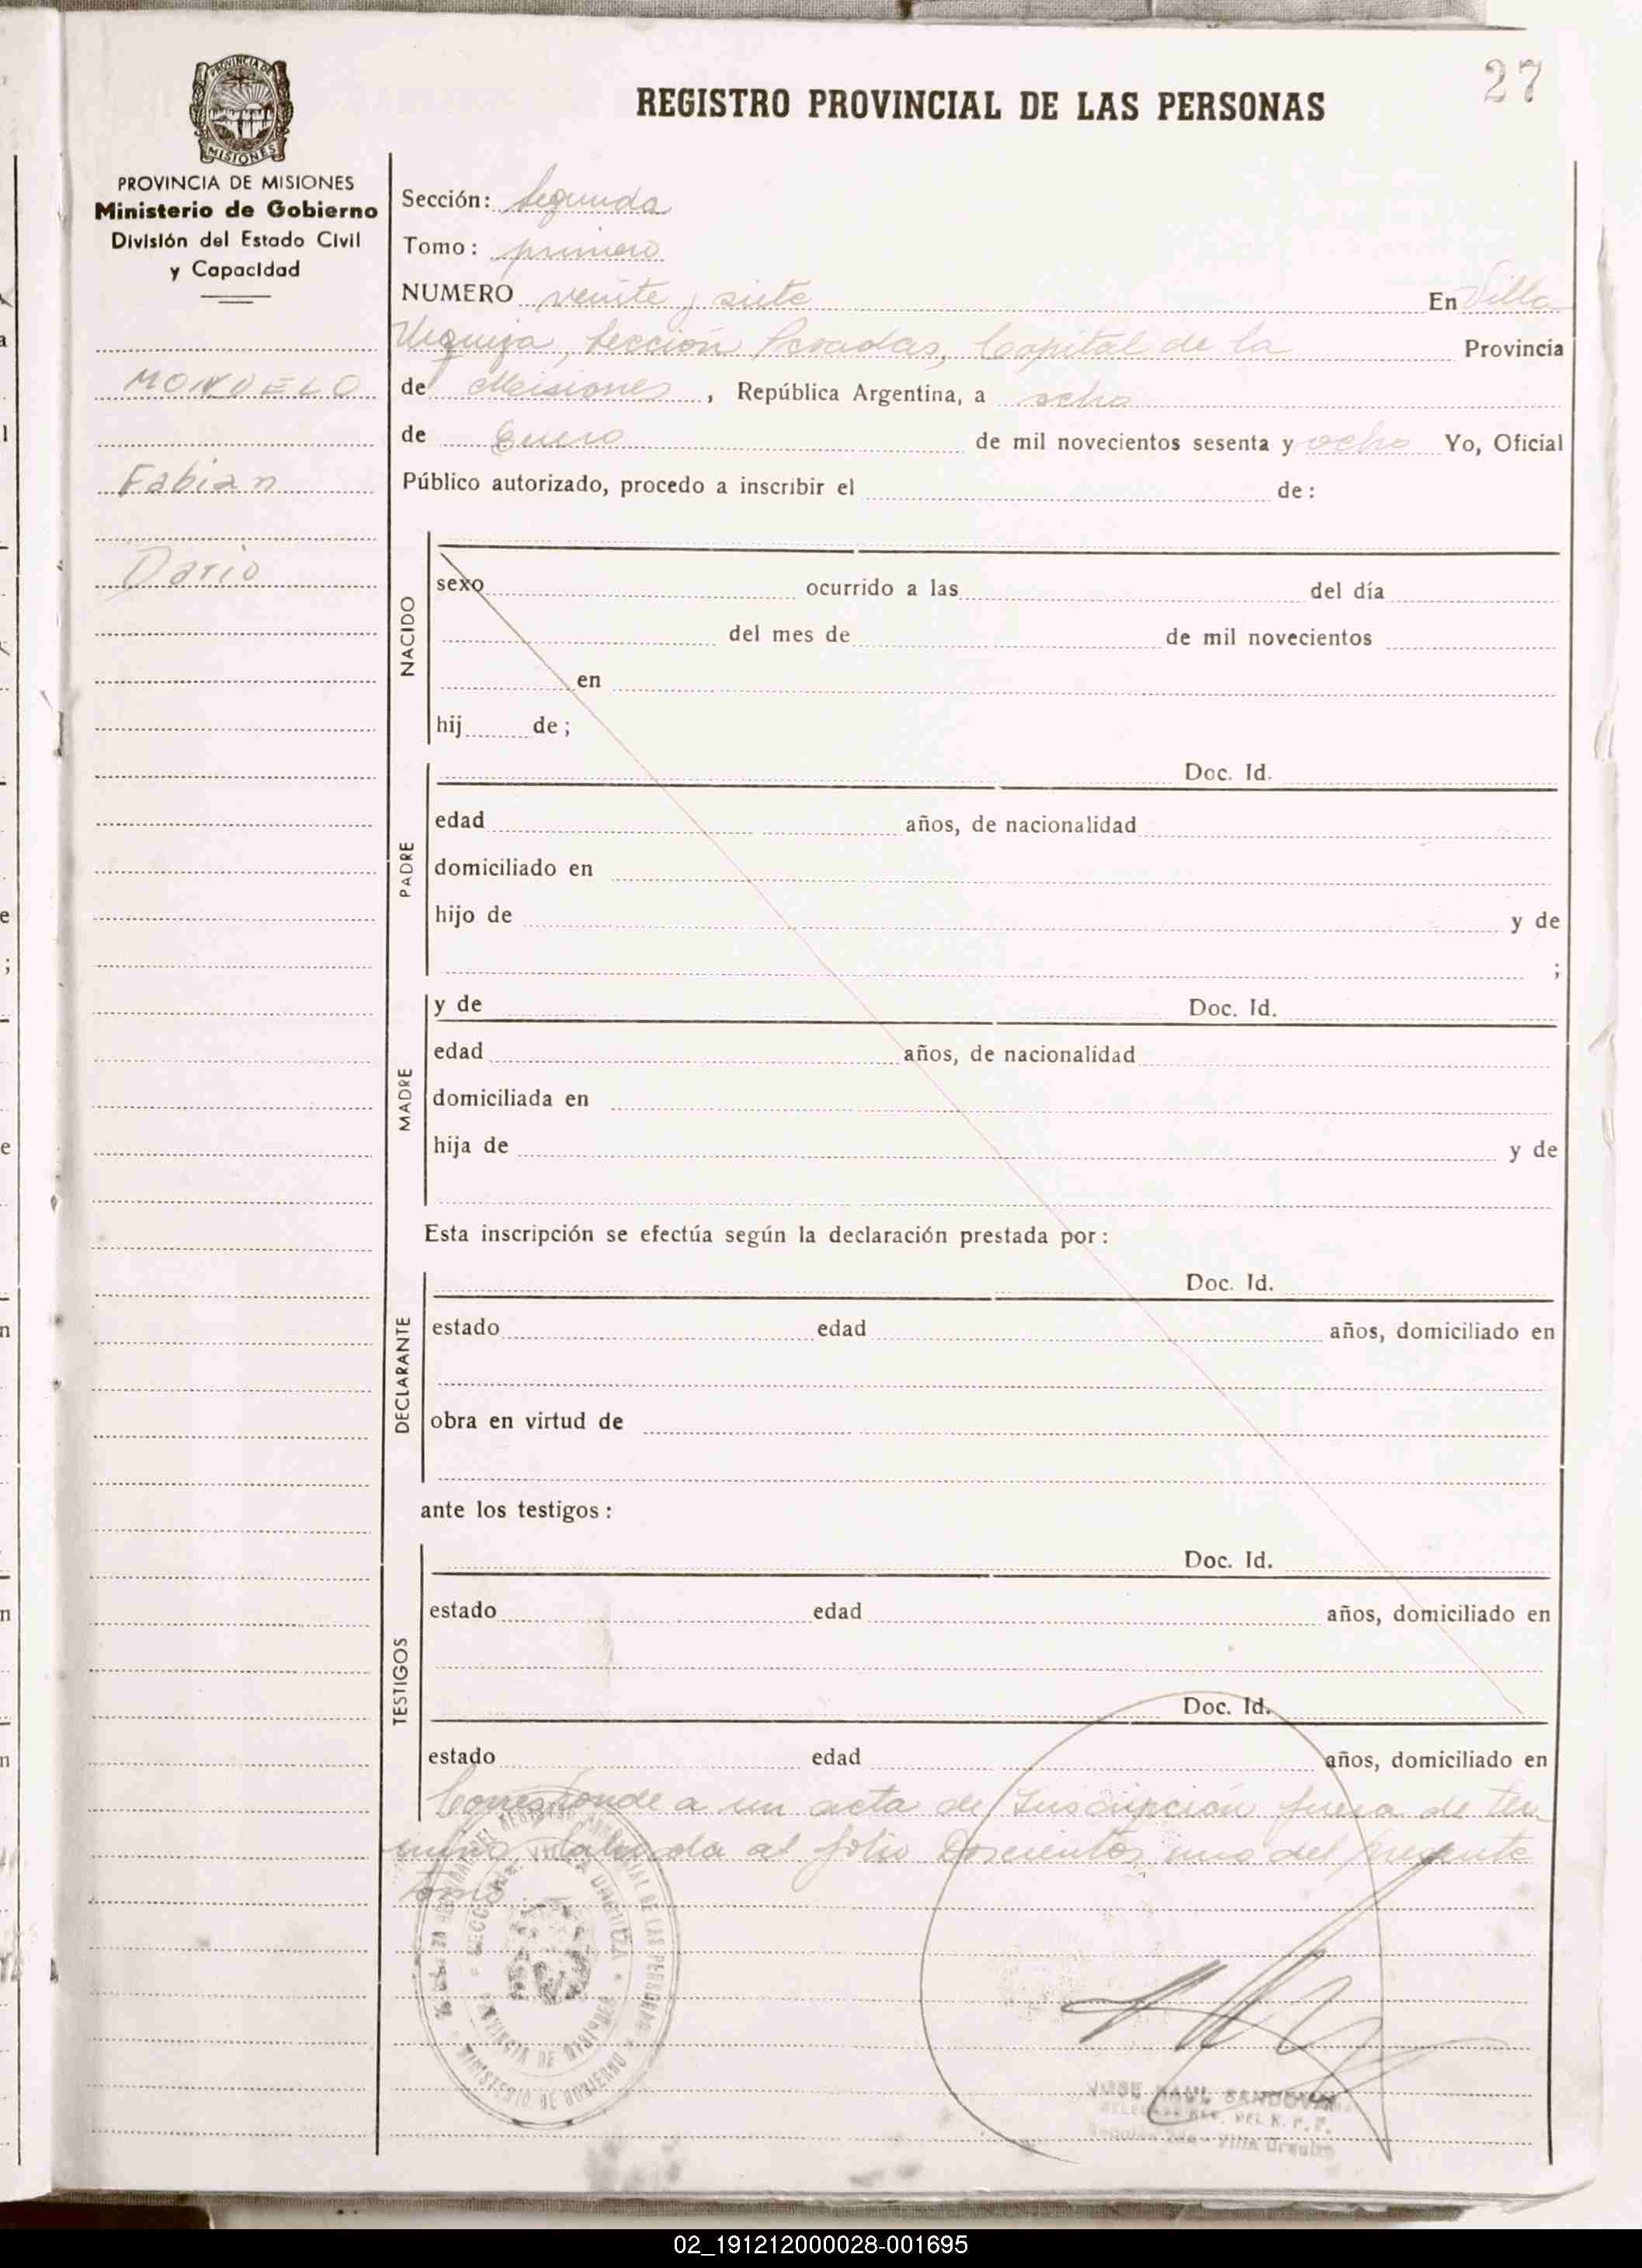 27
PROVINCIA DE MISIONES
REGISTRO PROVINCIAL DE LAS PERSONAS
PROVINCIA DE MISIONES
Ministerio de Gobierno
División del Estado Civil
y Capacidad
MONDELO
Fabian
Dario
Sección: Segunda
Tomo: primero
NUMERO veinte y siete En Villa
Urquiza, Sección Posadas, Capital de la Provincia
de Misiones, República Argentina, a ocho
de Enero de mil novecientos sesenta y ocho Yo, Oficial
Público autorizado, procedo a inscribir el de:
NACIDO
sexo ocurrido a las del día
del mes de de mil novecientos
en
hij de;
PADRE
Doc. Id.
edad años, de nacionalidad
domiciliado en
hijo de y de
;
MADRE
y de Doc. Id.
edad años, de nacionalidad
domiciliada en
hija de y de
Esta inscripción se efectúa según la declaración prestada por:
DECLARANTE
Doc. Id.
estado edad años, domiciliado en
obra en virtud de
ante los testigos:
TESTIGOS
Doc. Id.
estado edad años, domiciliado en
Doc. Id.
estado edad años, domiciliado en
Corresponde a un acta de Inscripción fuera de ter
mino labrada al folio Doscientos uno del presente
tomo
PROVINCIA DE MISIONES
MINISTERIO DE GOBIERNO
JOSE RAUL SANDOVAL
DEL R. P. P.
Villa Urquiza
02_191212000028-001695